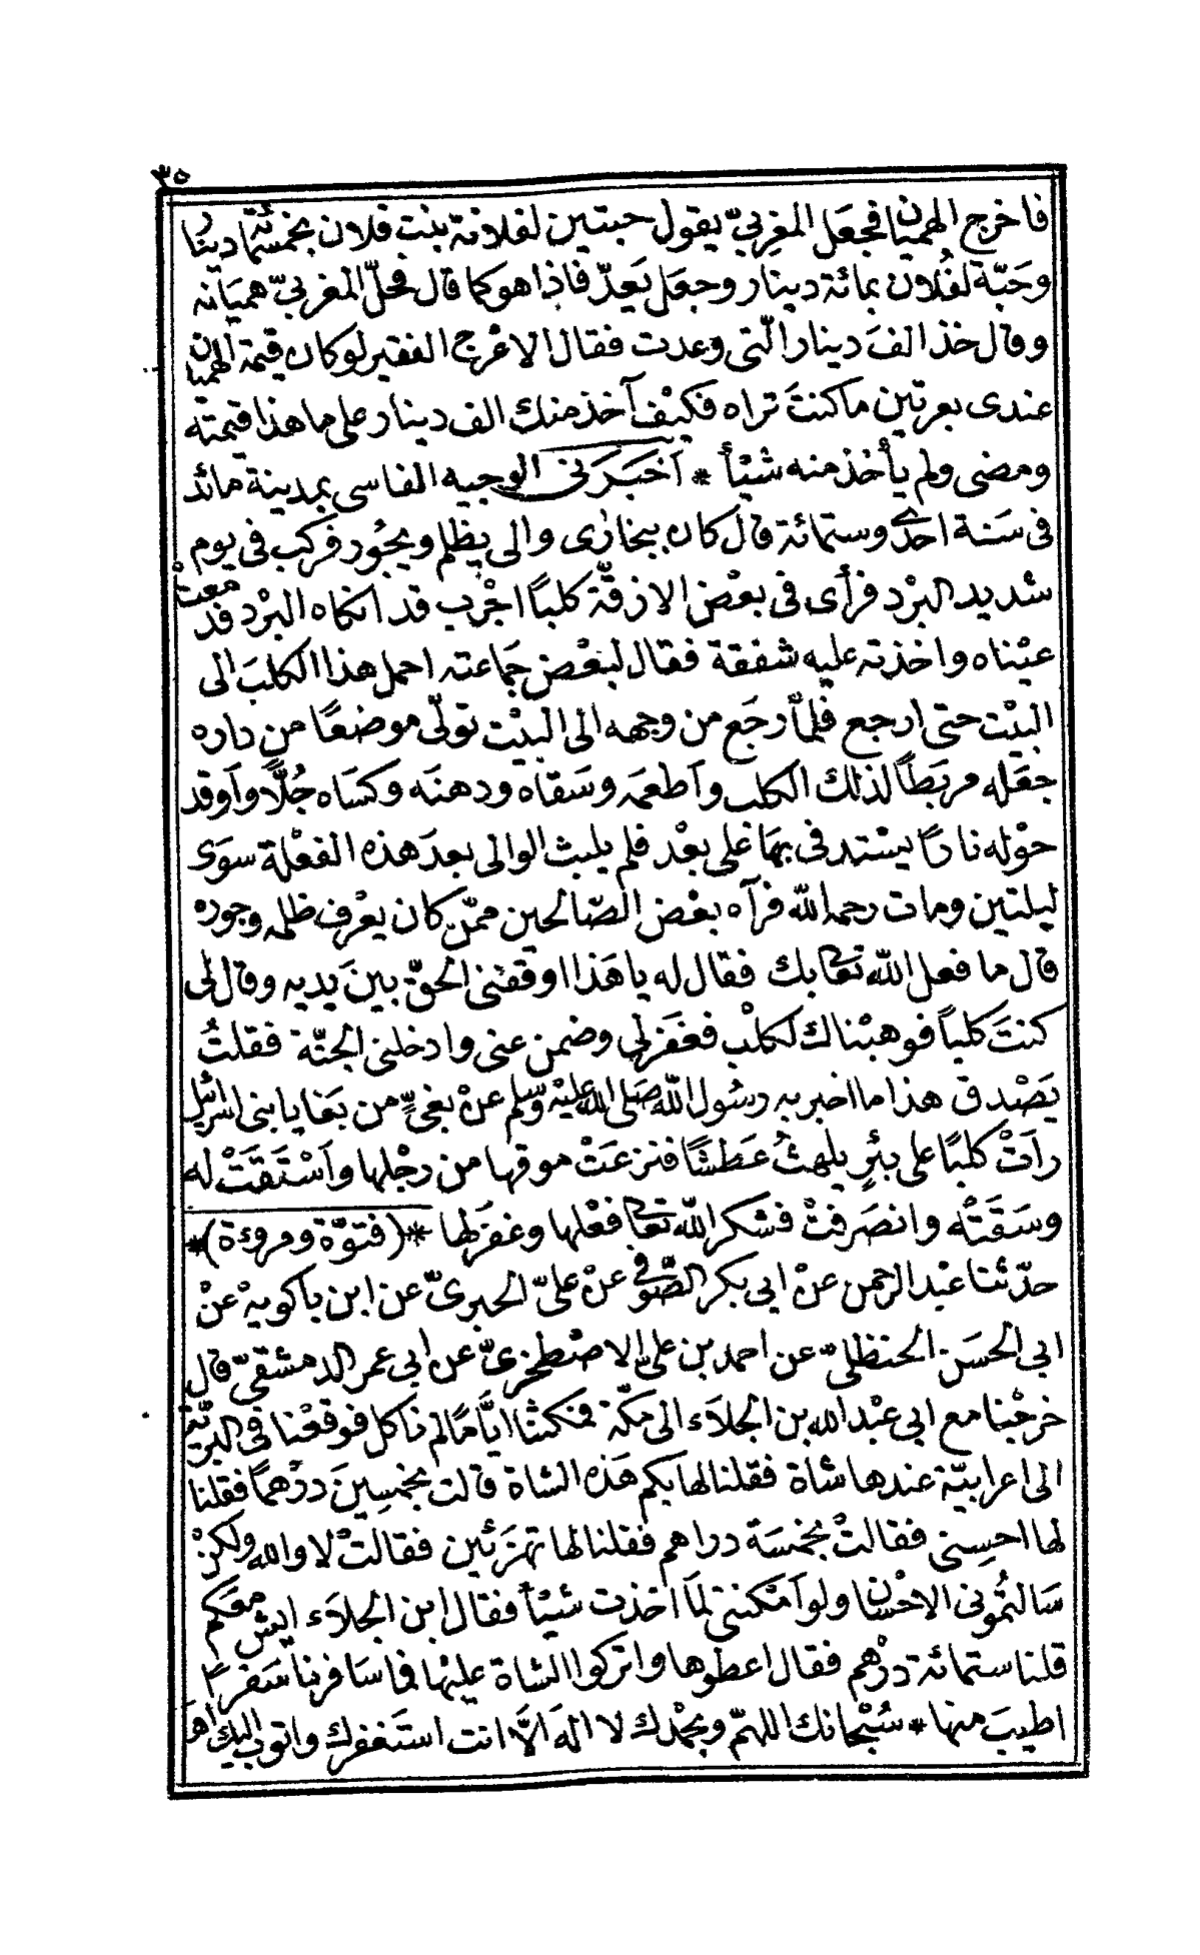 ٣٥
فاخرج الهميان فجعل المغربيّ يقول حبتين لفلانة بنت فلان بخمسمائة دينار
وحَبّة لفُلان بمائة دينار وجعل يَعدّ فاذا هو كما قال فحلّ المغربيّ هميَانه
وقال خذ الفَ دينار الّتي وعدت فقال الاعْرج الفقير لو كان قيمة الهميان
عندى بعرتين ما كنتَ تراه فكيْف آخذ منك الف دينار على ما هذا قيمته
ومضى ولم يأخذ منه شيْأ * اَخبَرَنى الوجيه الفاسى بمدينة
فى سَنة احدى وستمائة قال كان ببخارٰى والى يظلم ويجُور فركب فى يوم
شديد البرْد فرأى فى بعْض الازقّة كلبًا اجْرب قد انكاه البرْد قد معت
عيْناه واخذته عليه شفقة فقال لبعْض جَماعته احمل هذا الكلبَ الى
البيْت حتى ارجع فلمّا رجَع من وجهه الى البيْت تولّى موضعًا من داره
جعَله مربَطاً لذلك الكلب واَطعمَه وسَقاه ودهنَه وكسَاه جُلًّا واَوقد
حوْله نارًا يستدفى بهَا على بعْد فلم يلبث الوالى بعدَ هذه الفعْلة سوَى
ليلتين ومات رحمه الله فرآه بعْض الصّالحين ممّن كان يعْرف ظلمه وجوره
قال ما فعل الله تعالى بك فقال له يا هَذا اوقفنى الحقّ بينَ يديه وقال لى
كنتَ كلباً فوهبْناك لكلْب فغفَرلى وضمن عنى وادخلنى الجنّة فقلتُ
يَصْدق هذا ما اخبر به رسُول الله صَلى الله عليْه وسلم عنْ بغىٍّ من بَغايا بنى اسرائيل
رأتْ كلبًا على بئرٍ يلهثُ عَطشًا فنزعَتْ موقها من رجْلها واَسْتَقَتْ له
وسَقَتْه وانصَرفتْ فشكر الله تعالى فعْلها وغفرَ لها *(فتوّة ومروءة)*
حدّثنا عبْد الرحمن عنْ ابى بكر الصّوفى عنْ علىّ الحبرىّ عن ابن باكويه عنْ
ابى الحسَن الحنظلىّ عن احمد بن علىّ الاصْطخرىّ عن ابى عمر الدمشقىّ قال
خرجْنا مع ابى عبْد الله بن الجلَاء الى مكّة فمكثنا ايَّامًا لم ناكل فوقعْنا فى البرّيّة
الى اعرابيّة عندها شاة فقلنا لها بكم هَذه الشاة قالت بخمسِينَ درْهمًا فقلنا
لها احسِنى فقالتْ بخمسَة دراهم فقلنا لها تهزَئين فقالتْ لا والله ولكنْ
سَالتمُونى الاحْسَان ولو اَمْكننى لمَا اَخذت شيْأ فقال ابن الجلَاء ايش معَكم
قلنا ستمائة درْهم فقال اعطوها واتركوا الشاة عليْها فما سَافرنا سَفرًا
اطيبَ منها * سُبْحانك اللهمّ وبحمْدك لا الهَ الَّا انت استَغفرك واتوب اليك اهَ